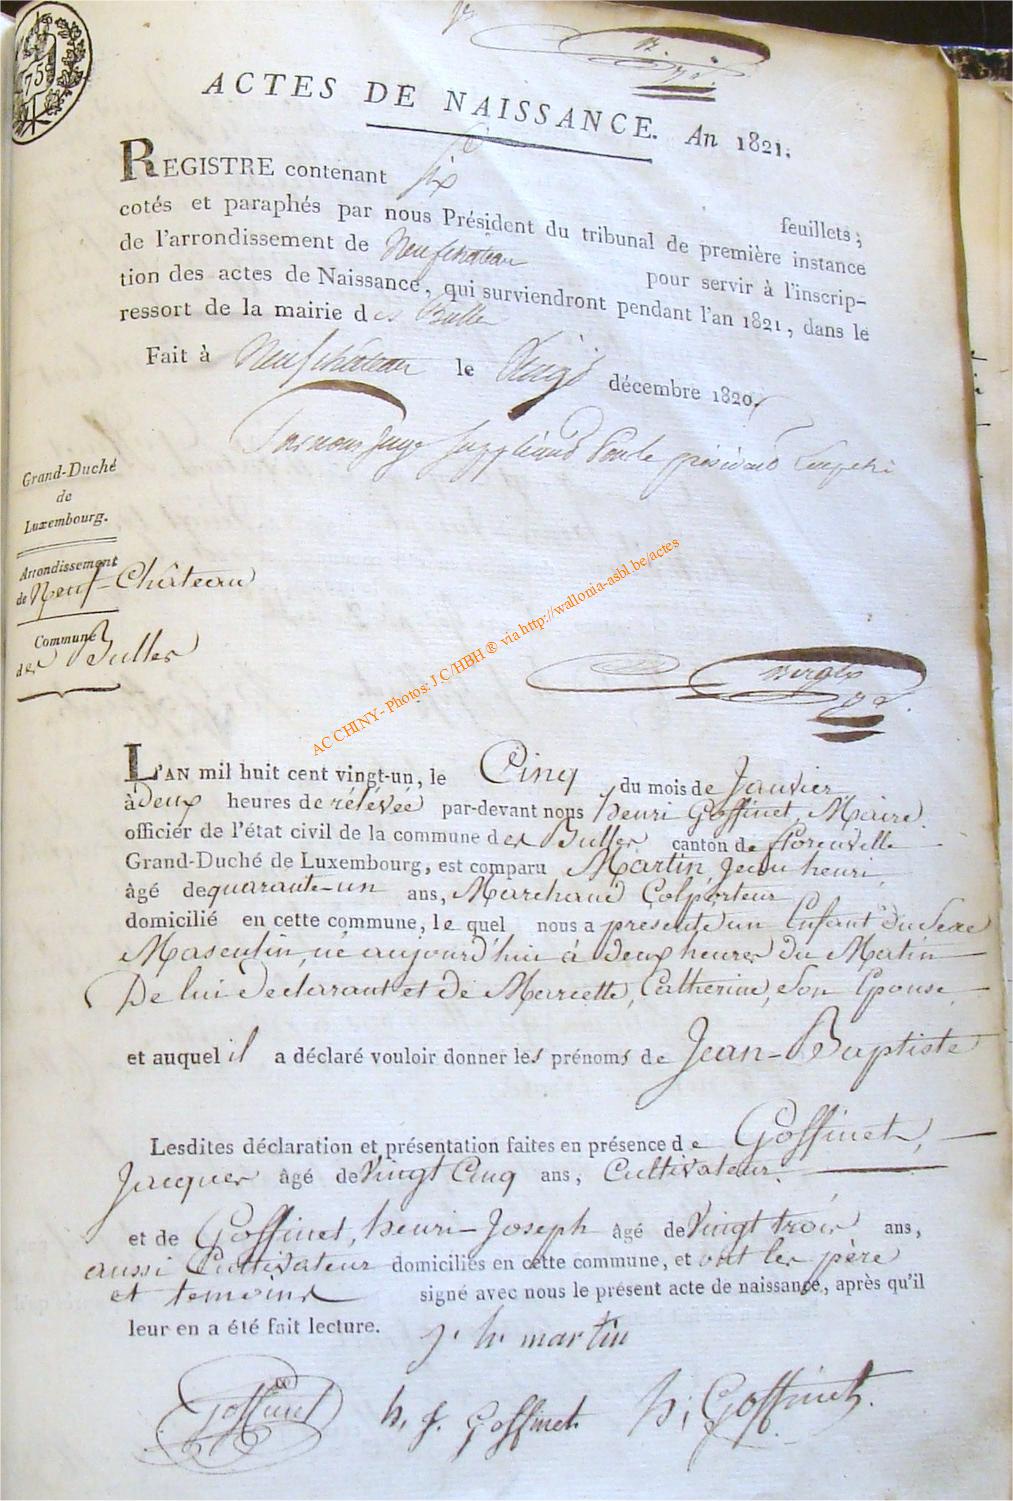 ACTES DE NAISSANCE. An 1821.
REGISTRE contenant six feuillets;
cotés et paraphés par nous Président du tribunal de première instance
de l'arrondissement de Neufchâteau pour servir à l'inscrip-
tion des actes de Naissance, qui surviendront pendant l'an 1821, dans le
ressort de la mairie des Bulles
Fait à Neufchâteau le Vingt décembre 1820.
Par nous Juge Suppléand Pour le président
Grand-Duché
de
Luxembourg.
Arrondissement
de Neuf-Château
Commune
des Bulles
AC CHINY - Photos: J.C/HBH ® via http://wallonia-asbl.be/actes
L'AN mil huit cent vingt-un, le Cinq du mois de Janvier
à deux heures de rélévée par-devant nous henri Goffinet, Maire
officier de l'état civil de la commune des Bulles canton de florenville
Grand-Duché de Luxembourg, est comparu Martin, Jean henri,
âgé de quarante-un ans, Marchand Colporteur
domicilié en cette commune, le quel nous a presenté un Enfant du Sexe
Masculin, né aujourd'hui à deux heures du Matin
De lui Declarant et de Marcette, Catherine, Son Epouse
et auquel il a déclaré vouloir donner les prénoms de Jean-Baptiste
Lesdites déclaration et présentation faites en présence de Goffinet,
Jacques âgé de Vingt Cinq ans, Cultivateur.
et de Goffinet, henri-Joseph âgé de Vingt trois ans,
aussi Cultivateur domiciliés en cette commune, et ont les père
et temoins signé avec nous le présent acte de naissance, après qu'il
leur en a été fait lecture.
j. h. martin
Goffinet h. j. Goffinet h. Goffinet.